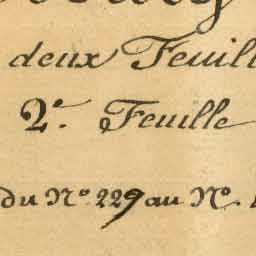 deux Feuil
2.e Feuille
du N.o 229 au N.o